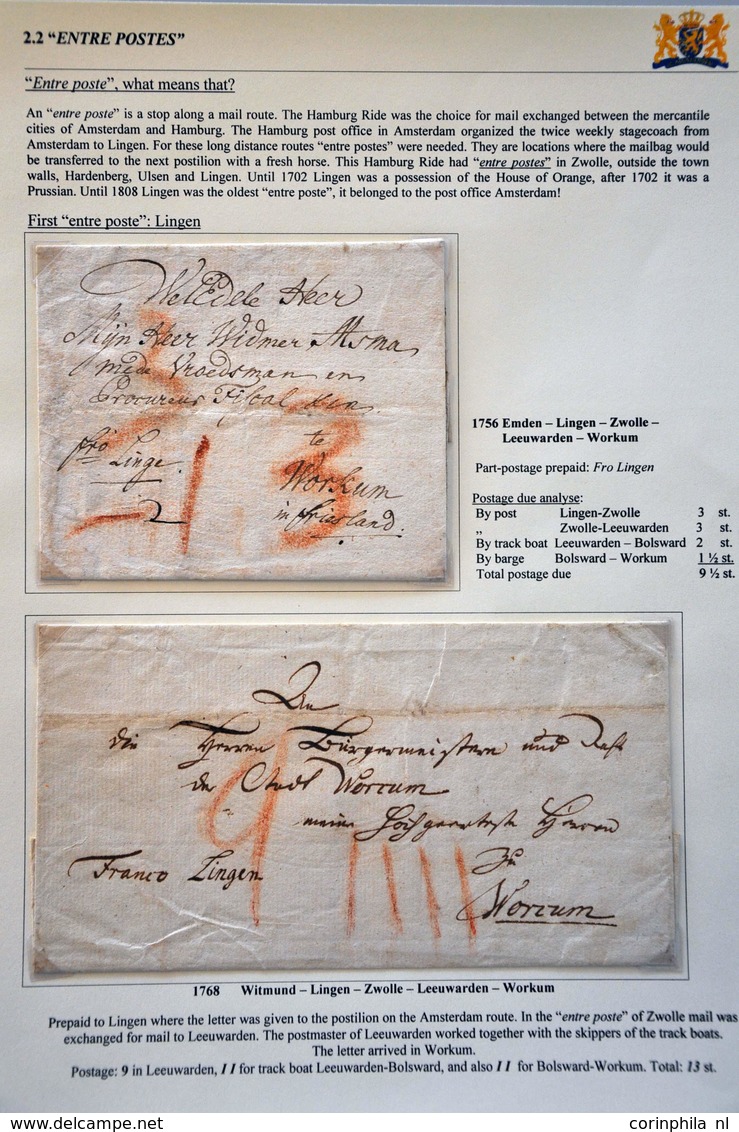 2.2 “ENTRE POSTES”
“Entre poste”, what means that?
An “entre poste” is a stop along a mail route. The Hamburg Ride was the choice for mail exchanged between the mercantile
cities of Amsterdam and Hamburg. The Hamburg post office in Amsterdam organized the twice weekly stagecoach from
Amsterdam to Lingen. For these long distance routes “entre postes” were needed. They are locations where the mailbag would
be transferred to the next postilion with a fresh horse. This Hamburg Ride had “entre postes” in Zwolle, outside the town
walls, Hardenberg, Ulsen and Lingen. Until 1702 Lingen was a possession of the House of Orange, after 1702 it was a
Prussian. Until 1808 Lingen was the oldest “entre poste”, it belonged to the post office Amsterdam!
First “entre poste”: Lingen
WelEdele Heer
Mijn Heer Widmer
mede Vroedsman en
Procureur Fiscal
te
fro Linge
Workum
in Friesland.
3
1 3
2
1756 Emden – Lingen – Zwolle –
Leeuwarden – Workum
Part-postage prepaid: Fro Lingen
Postage due analyse:
By post Lingen-Zwolle 3 st.
„ Zwolle-Leeuwarden 3 st.
By track boat Leeuwarden – Bolsward 2 st.
By barge Bolsward – Workum 1 ½ st.
Total postage due 9 ½ st.
An
die Herren Bürgermeistern und Raht
der Stadt Worcum
meine Hochgeehrteste Herren
Franco Lingen
zu
Worcum
9 IIII
1768 Witmund – Lingen – Zwolle – Leeuwarden – Workum
Prepaid to Lingen where the letter was given to the postilion on the Amsterdam route. In the “entre poste” of Zwolle mail was
exchanged for mail to Leeuwarden. The postmaster of Leeuwarden worked together with the skippers of the track boats.
The letter arrived in Workum.
Postage: 9 in Leeuwarden, I I for track boat Leeuwarden-Bolsward, and also I I for Bolsward-Workum. Total: 13 st.
corinphila nl